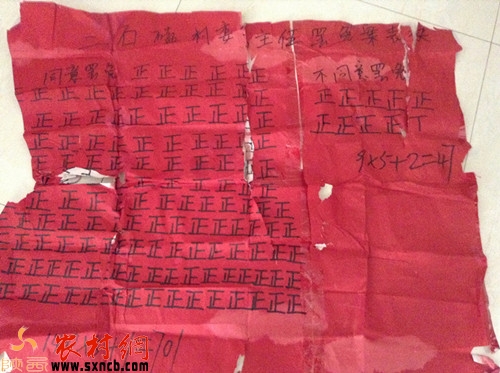 二石磕村委主任罢免票表决
同意罢免 正正正正正正正
不同意罢免
正正正正正正正正正正正
正正正正正
正正正正正正正正正正正
正正正正丅
正正正正正正正正正正正
9x5+2=47
正正正正正正正正正正正
正正正正正正正正正
正正正正正正正正正正正
正正正正正正正正正正正
正正正正正正正正正正正正正
正正正正正正正正正正正正正
正正正正正正正正正正正正正
陕西 农村網
www.sxncb.com